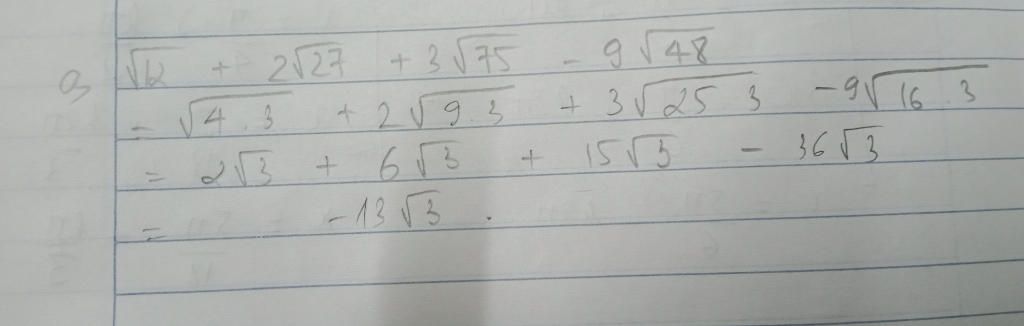 a) √12 + 2√27 + 3√75 - 9√48
= √4.3 + 2√9.3 + 3√25.3 - 9√16.3
= 2√3 + 6√3 + 15√3 - 36√3
= -13√3 .